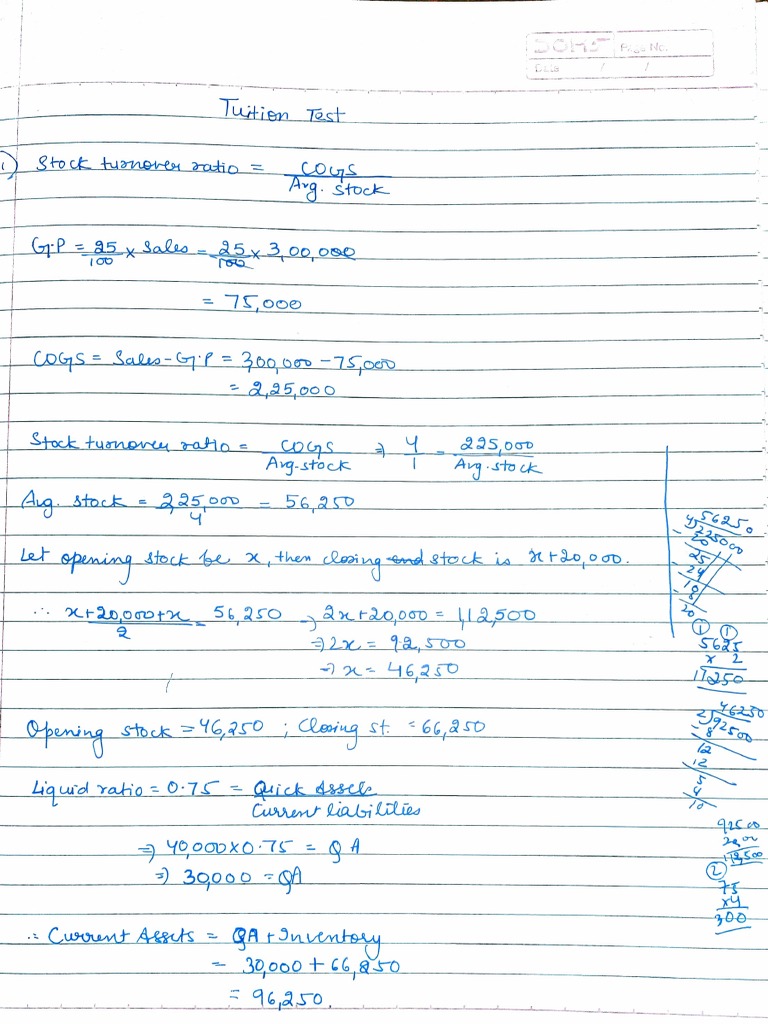 DOMS Page No.
Date / /
Tuition Test
1) Stock turnover ratio = COGS / Avg. stock
G.P = 25/100 × Sales = 25/100 × 3,00,000
= 75,000
COGS = Sales - G.P = 300,000 - 75,000
= 2,25,000
Stock turnover ratio = COGS / Avg. stock ⇒ 4/1 = 225,000 / Avg. stock
Avg. stock = 2,25,000 / 4 = 56,250
Let opening stock be x, then closing stock is x+20,000.
∴ x+20,000+x / 2 = 56,250 ⇒ 2x+20,000 = 1,12,500
⇒ 2x = 92,500
⇒ x = 46,250
Opening stock = 46,250 ; Closing st. = 66,250
Liquid ratio = 0.75 = Quick Assets / Current liabilities
⇒ 40,000 × 0.75 = QA
⇒ 30,000 = QA
∴ Current Assets = QA + Inventory
= 30,000 + 66,250
= 96,250.
56250
4)225000
- 20
25
- 24
10
- 8
20
1 1
5625
× 2
11250
46250
2)92500
- 8
12
- 12
5
4
10
92500
112,500
2
75
×4
300